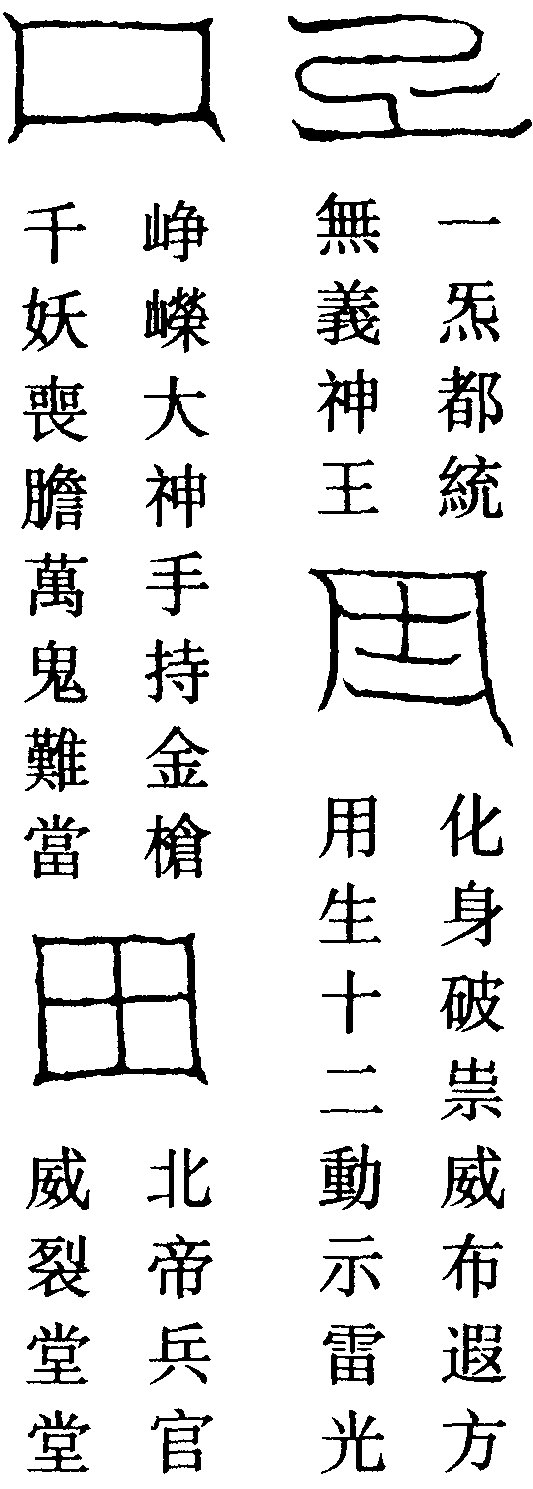 一炁都統
無義神王
化身破祟威布遐方
用生十二動示雷光
崢嶸大神手持金槍
千妖喪膽萬鬼難當
北帝兵官
威裂堂堂